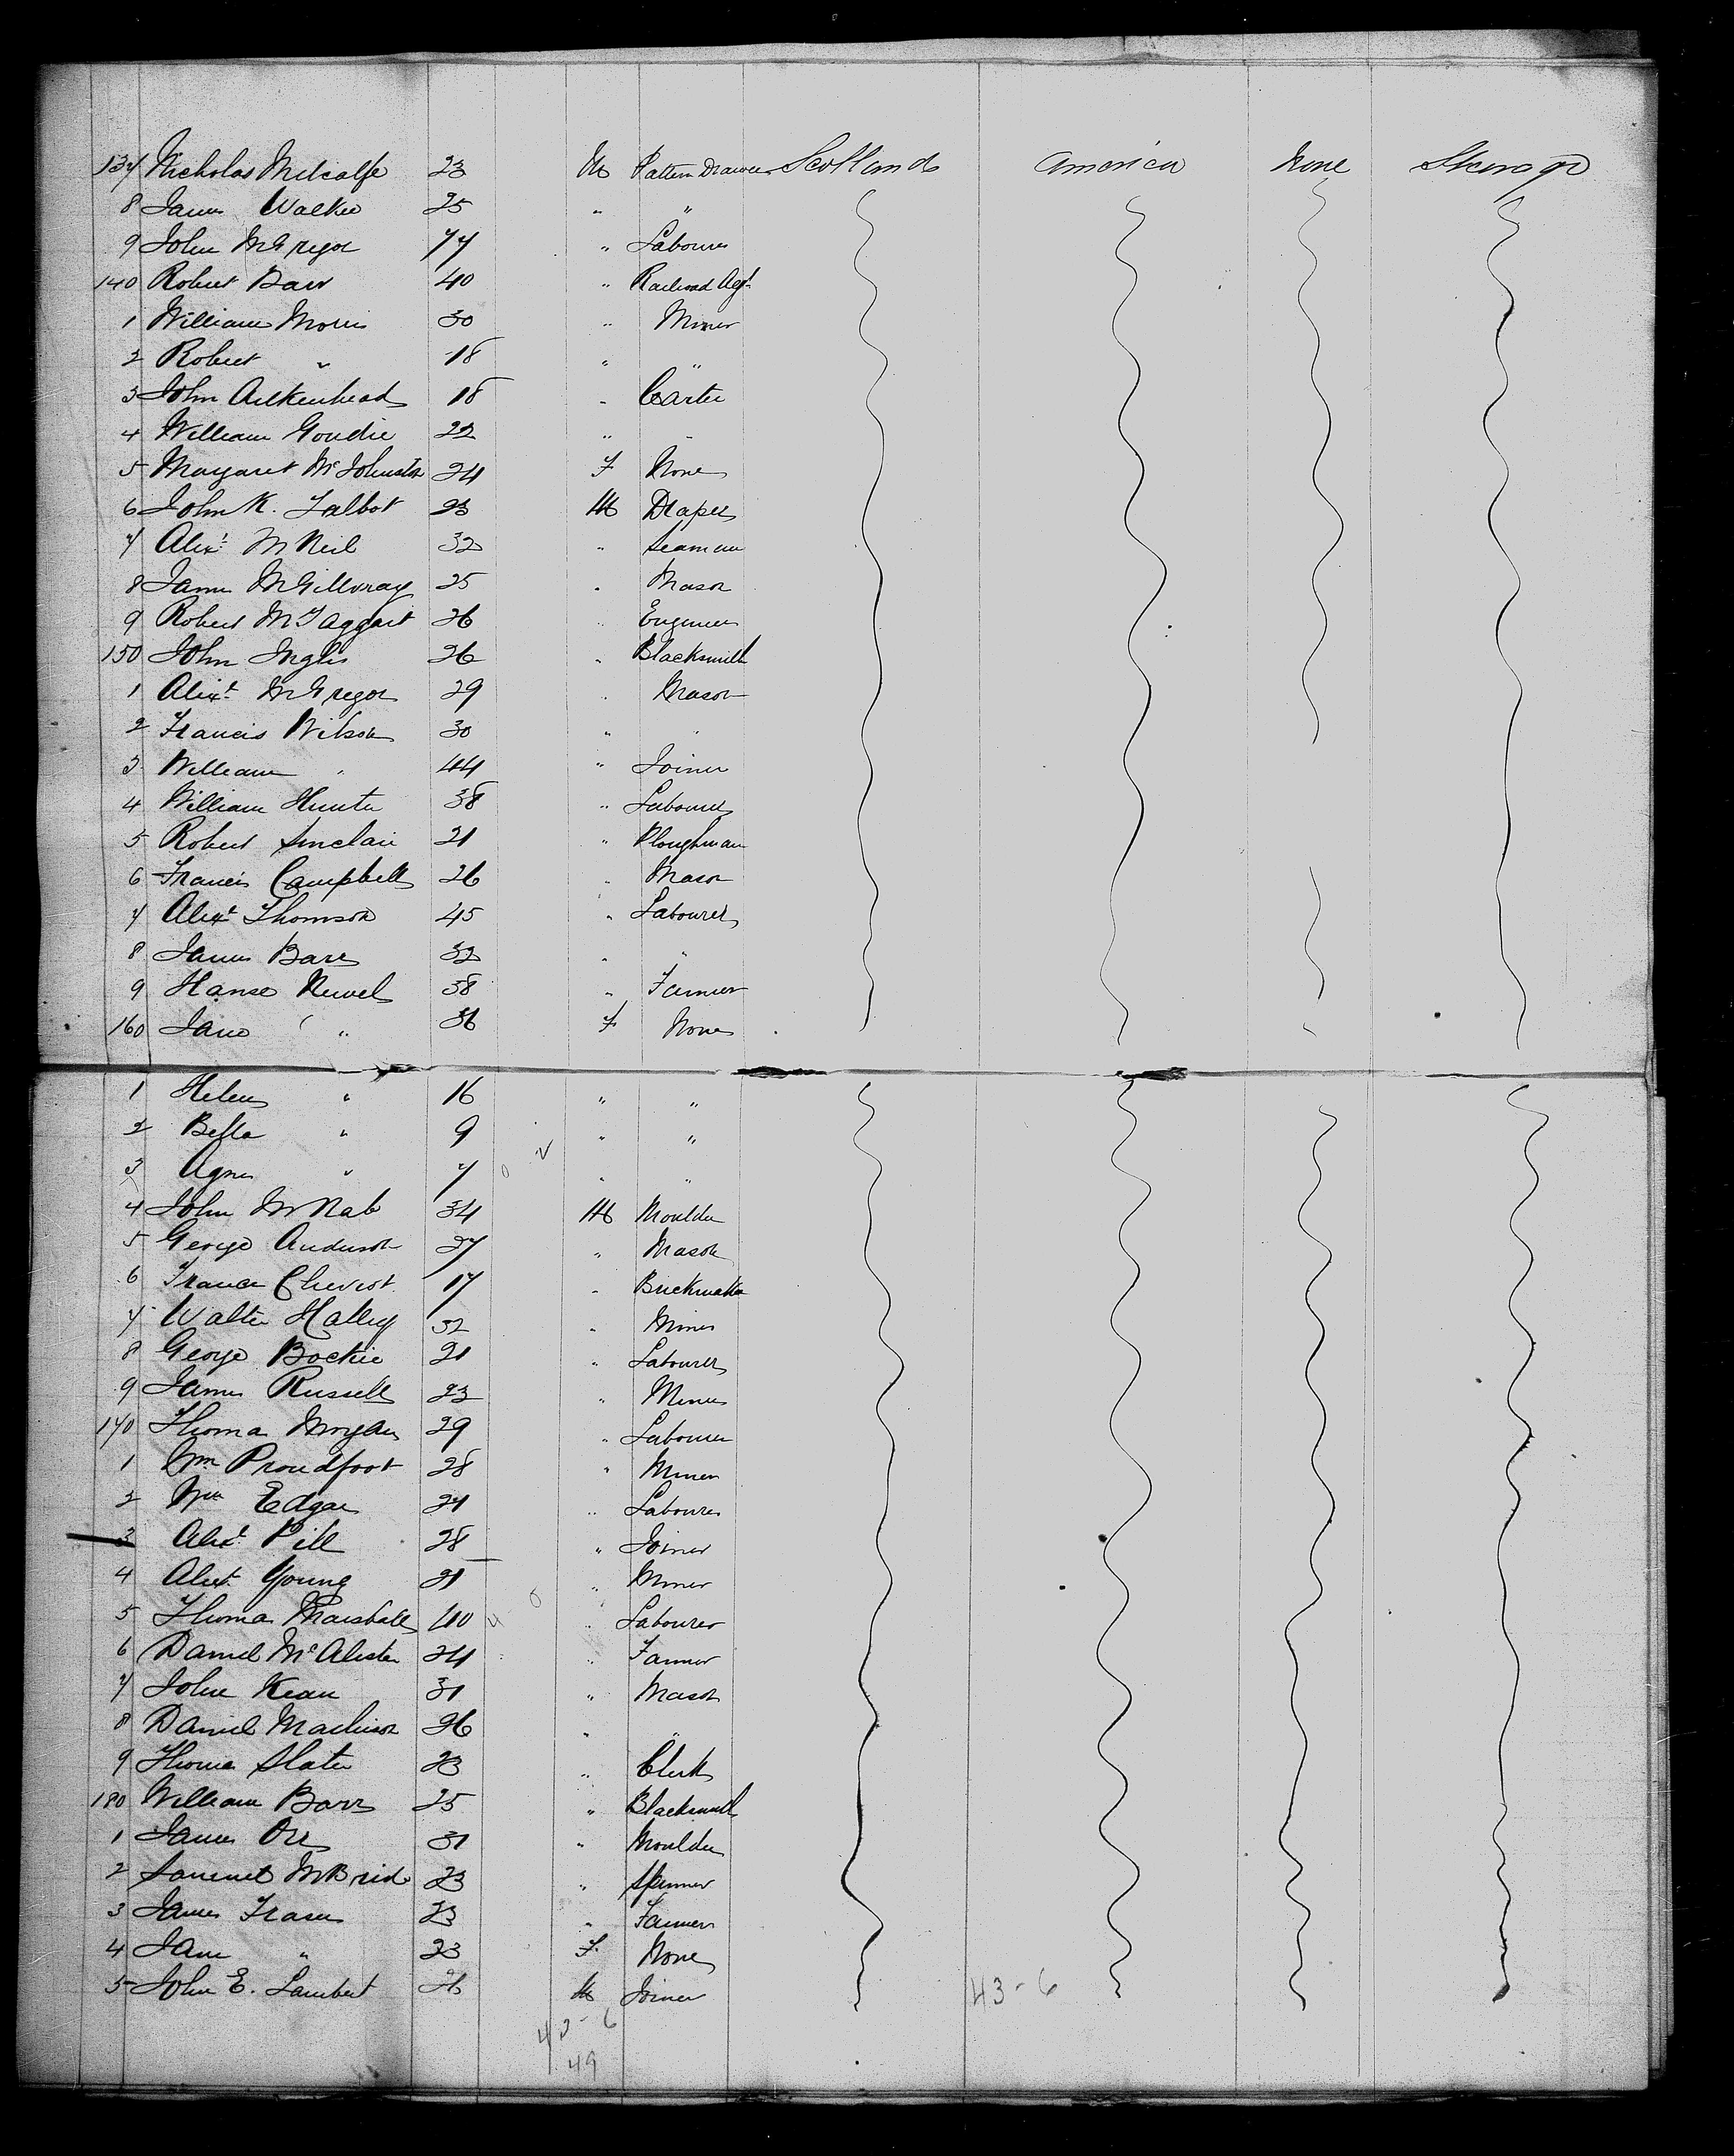 137 Nicholas Metcalfe 23 M Pattern Drawer Scotland America None Steerage
8 James Walker 25 " "
9 John McGregor 77 " Labourer
140 Robert Barr 40 " Railroad Agt
1 William Morris 30 " Miner
2 Robert " 18 " "
3 John Aitkenhead 18 " Carter
4 William Goudie 22 " "
5 Margaret McJohnston 24 F None
6 John K. Talbot 23 M Draper
7 Alexr McNeil 32 " Seaman
8 James McGillvray 25 " Mason
9 Robert McTaggart 26 " Engineer
150 John Inglis 26 " Blacksmith
1 Alext McGregor 29 " Mason
2 Francis Wilson 30 " "
3 William " 44 " Joiner
4 William Hunter 38 " Labourer
5 Robert Sinclair 21 " Ploughman
6 Francis Campbell 26 " Mason
7 Alext Thomson 45 " Labourer
8 James Barr 32 " "
9 Hanse Newel 38 " Farmer
160 Jane " 36 F None
1 Helen " 16 " "
2 Bella " 9 " "
3 Agnes " 7 " "
4 John McNab 34 M Moulder
5 George Anderson 27 " Mason
6 Francis Cheviot 17 " Brickmaker
7 Walter Halley 32 " Miner
8 George Bockie 21 " Labourer
9 James Russell 23 " Miner
170 Thomas Morgan 29 " Labourer
1 Wm Proudfoot 28 " Miner
2 Wm Edgar 21 " Labourer
3 Alext Pill 28 " Joiner
4 Alext Young 21 " Miner
5 Thomas Marshall 40 " Labourer
6 Daniel McAlister 24 " Farmer
7 John Kean 31 " Mason
8 Daniel Mathison 26 " "
9 Thomas Slater 23 " Clerk
180 William Barr 25 " Blacksmith
1 James Orr 31 " Moulder
2 Samuel McBride 23 " Spinner
3 James Fraser 23 " Farmer
4 Jane " 23 F None
5 John E. Lambert 26 M Joiner
43-6
43-6
49